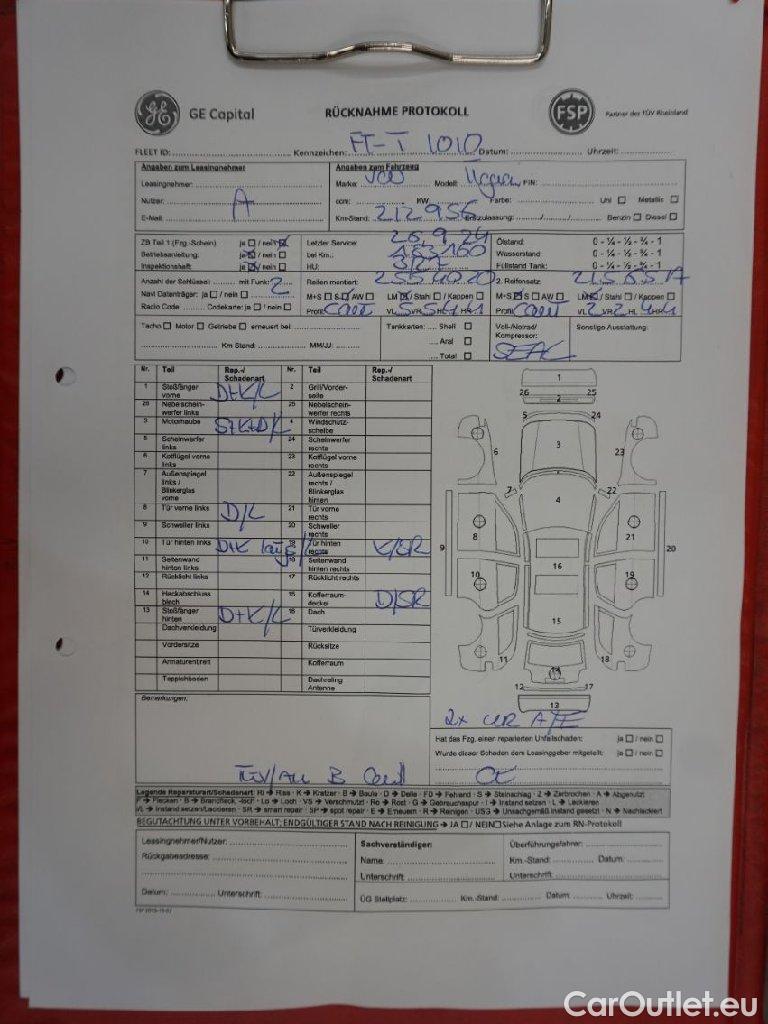 GE Capital
RÜCKNAHME PROTOKOLL
FSP
Partner des TÜV Rheinland
FLEET ID: Kennzeichen: FT-T 1010 Datum: Uhrzeit:
Angaben zum Leasingnehmer
Angaben zum Fahrzeug
Leasingnehmer:
Marke: Modell: FIN:
Nutzer: A
ccm: KW Farbe: Uni □ Metallic □
E-Mail:
Km-Stand: 212.956 Erstzulassung: Benzin □ Diesel □
ZB Teil 1 (Frzg.-Schein) ja □ / nein ☒
Letzter Service: 26.9.24
Ölstand: 0 - ¼ - ½ - ¾ - 1
Betriebsanleitung: ja ☒ / nein □
bei Km.: 183160
Wasserstand: 0 - ¼ - ½ - ¾ - 1
Inspektionsheft: ja ☒ / nein □
HU: 3/27
Füllstand Tank: 0 - ¼ - ½ - ¾ - 1
Anzahl der Schlüssel: mit Funk: 2
Reifen montiert: 255 40 20
2. Reifensatz: 215 65 17
Navi Datenträger: ja □ / nein □
M+S □ S AW □ LM / Stahl □ / Kappen □
M+S S □ AW □ LM / Stahl □ / Kappen □
Radio Code Codekarte: ja □ / nein □
Profil Conti VL 5 VR 5 HL 4 HR 4
Profil Conti VL 2 VR 2 HL 4 HR 4
Tacho □ Motor □ Getriebe □ erneuert bei
Tankkarten: Shell □
Voll-/Notrad/
Kompressor:
Sonstige Ausstattung:
Km Stand: MM/JJ:
Aral □
Total □
SEAL
Nr. Teil Rep.-/ Schadenart Nr. Teil Rep.-/ Schadenart
1 Stoßfänger vorne D+K/L 2 Grill/Vorder-seite
26 Nebelschein-werfer links 25 Nebelschein-werfer rechts
3 Motorhaube S+K+D/L Windschutz-scheibe
5 Scheinwerfer links 24 Scheinwerfer rechts
6 Kotflügel vorne links 23 Kotflügel vorne rechts
7 Außenspiegel links / Blinkerglas vorne 22 Außenspiegel rechts / Blinkerglas hinten
8 Tür vorne links D/L 21 Tür vorne rechts
9 Schweller links 20 Schweller rechts
10 Tür hinten links D+K Tür hinten rechts K/SR
11 Seitenwand hinten links Seitenwand hinten rechts
12 Rücklicht links 17 Rücklicht rechts
14 Heckabschluss blech 15 Kofferraum-deckel D/SR
13 Stoßfänger hinten D+K/L 16 Dach
Dachverkleidung Türverkleidung
Vordersitze Rücksitze
Armaturenbrett Kofferraum
Teppichboden Dachreling Antenne
1
26 2 25
5 24
6 3 23
7 4 22
8 21
9 20
10 16 19
15
11 14 18
12 17
13
Bemerkungen:
2x
Hat das Fzg. einen reparierten Unfallschaden: ja □ / nein □
Wurde dieser Schaden dem Leasinggeber mitgeteilt: ja □ / nein □
B
OK
Legende Reparaturart/Schadenart: Ri → Riss - K → Kratzer - B → Beule - D → Delle - FD → Fehlend - S → Steinschlag - Z → Zerbrochen - A → Abgenutzt
F → Flecken - B → Brandfleck, -loch - Lo → Loch - VS → Verschmutzt - Ro → Rost - G → Gebrauchsspur - I → Instand setzen - L → Lackieren
I/L → Instand setzen/Lackieren - SR → smart repair - SP → spot repair - E → Erneuern - R → Reinigen - USG → Unsachgemäß instand gesetzt - N → Nachlackiert
BEGUTACHTUNG UNTER VORBEHALT; ENDGÜLTIGER STAND NACH REINIGUNG → JA □ / NEIN □ Siehe Anlage zum RN-Protokoll
Leasingnehmer/Nutzer:
Sachverständiger:
Überführungsfahrer:
Rückgabeadresse:
Name:
Km.-Stand: Datum:
Unterschrift:
Unterschrift:
Datum: Unterschrift:
ÜG Stellplatz: Km.-Stand: Datum: Uhrzeit:
CarOutlet.eu